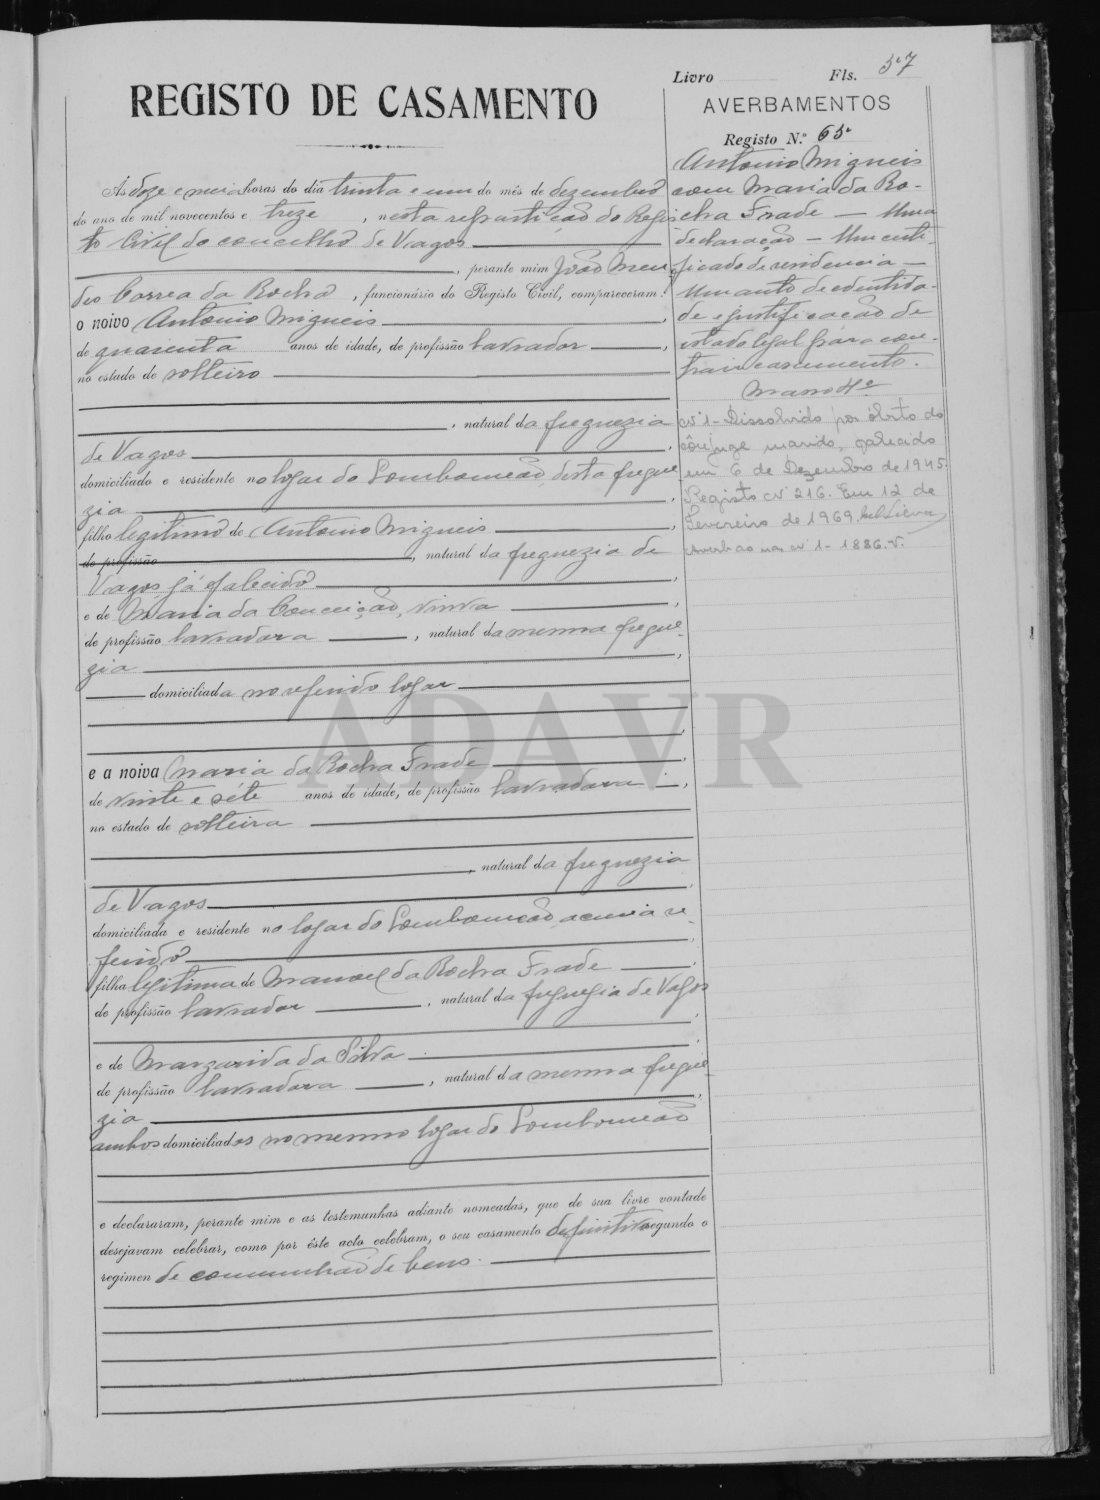 REGISTO DE CASAMENTO
Ás doze e meia horas do dia trinta e um do mês de dezembro
do ano de mil novecentos e treze , nesta repartição do Regis
to Civil do concelho de Vagos
, perante mim João Men
des Correa da Rocha , funcionário do Registo Civil, compareceram:
o noivo Antonio Migueis ,
de quarenta anos de idade, de profissão lavrador ,
no estado de solteiro
, natural da freguezia
de Vagos ,
domiciliado e residente no logar do Lombomeão, desta fregue
zia ,
filho legitimo de Antonio Migueis ,
de profissão , natural da freguezia de
Vagos, já falecido ,
e de Maria da Conceição, viuva ,
de profissão lavradora , natural da mesma fregue-
zia ,
domiciliada no referido logar
e a noiva Maria da Rocha Frade ,
de vinte e séte anos de idade, de profissão lavradora ,
no estado de solteira
, natural da freguezia
de Vagos ,
domiciliada e residente no logar do Lombomeão, acima re-
ferido ,
filha legitima de Manoel da Rocha Frade ,
de profissão lavrador , natural da freguezia de Vagos
,
e de Margarida da Silva ,
de profissão lavradora , natural da mesma fregue-
zia ,
ambos domiciliados no mesmo logar do Lombomeão
e declararam, perante mim e as testemunhas adiante nomeadas, que de sua livre vontade
desejavam celebrar, como por êste acto celebram, o seu casamento definitivo segundo o
regimen de comunhão de bens.
Livro Fls. 57
AVERBAMENTOS
Registo N.º 65
Antonio Migueis
com Maria da Ro-
cha Frade — Uma
declaração — Um certi-
ficado de residencia —
Um auto de edentida-
de e justificação de
estado legal para con-
trair casamento.
Masso 4º
Nº 1 - Dissolvido por óbito do
cônjuge marido, falecido
em 6 de Dezembro de 1945.
Registo Nº 216. Em 12 de
Fevereiro de 1969.
Averbão nº 1 - 1886-V.
ADAVR